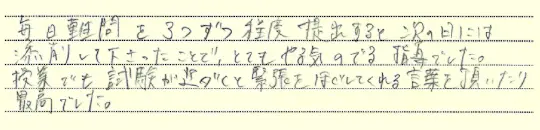 毎日難問を3つずつ程度提出すると次の日には
添削して下さったことで、とてもやる気のでる指導でした。
授業でも試験が近づくと緊張をほぐしてくれる言葉を頂いたり
最高でした。